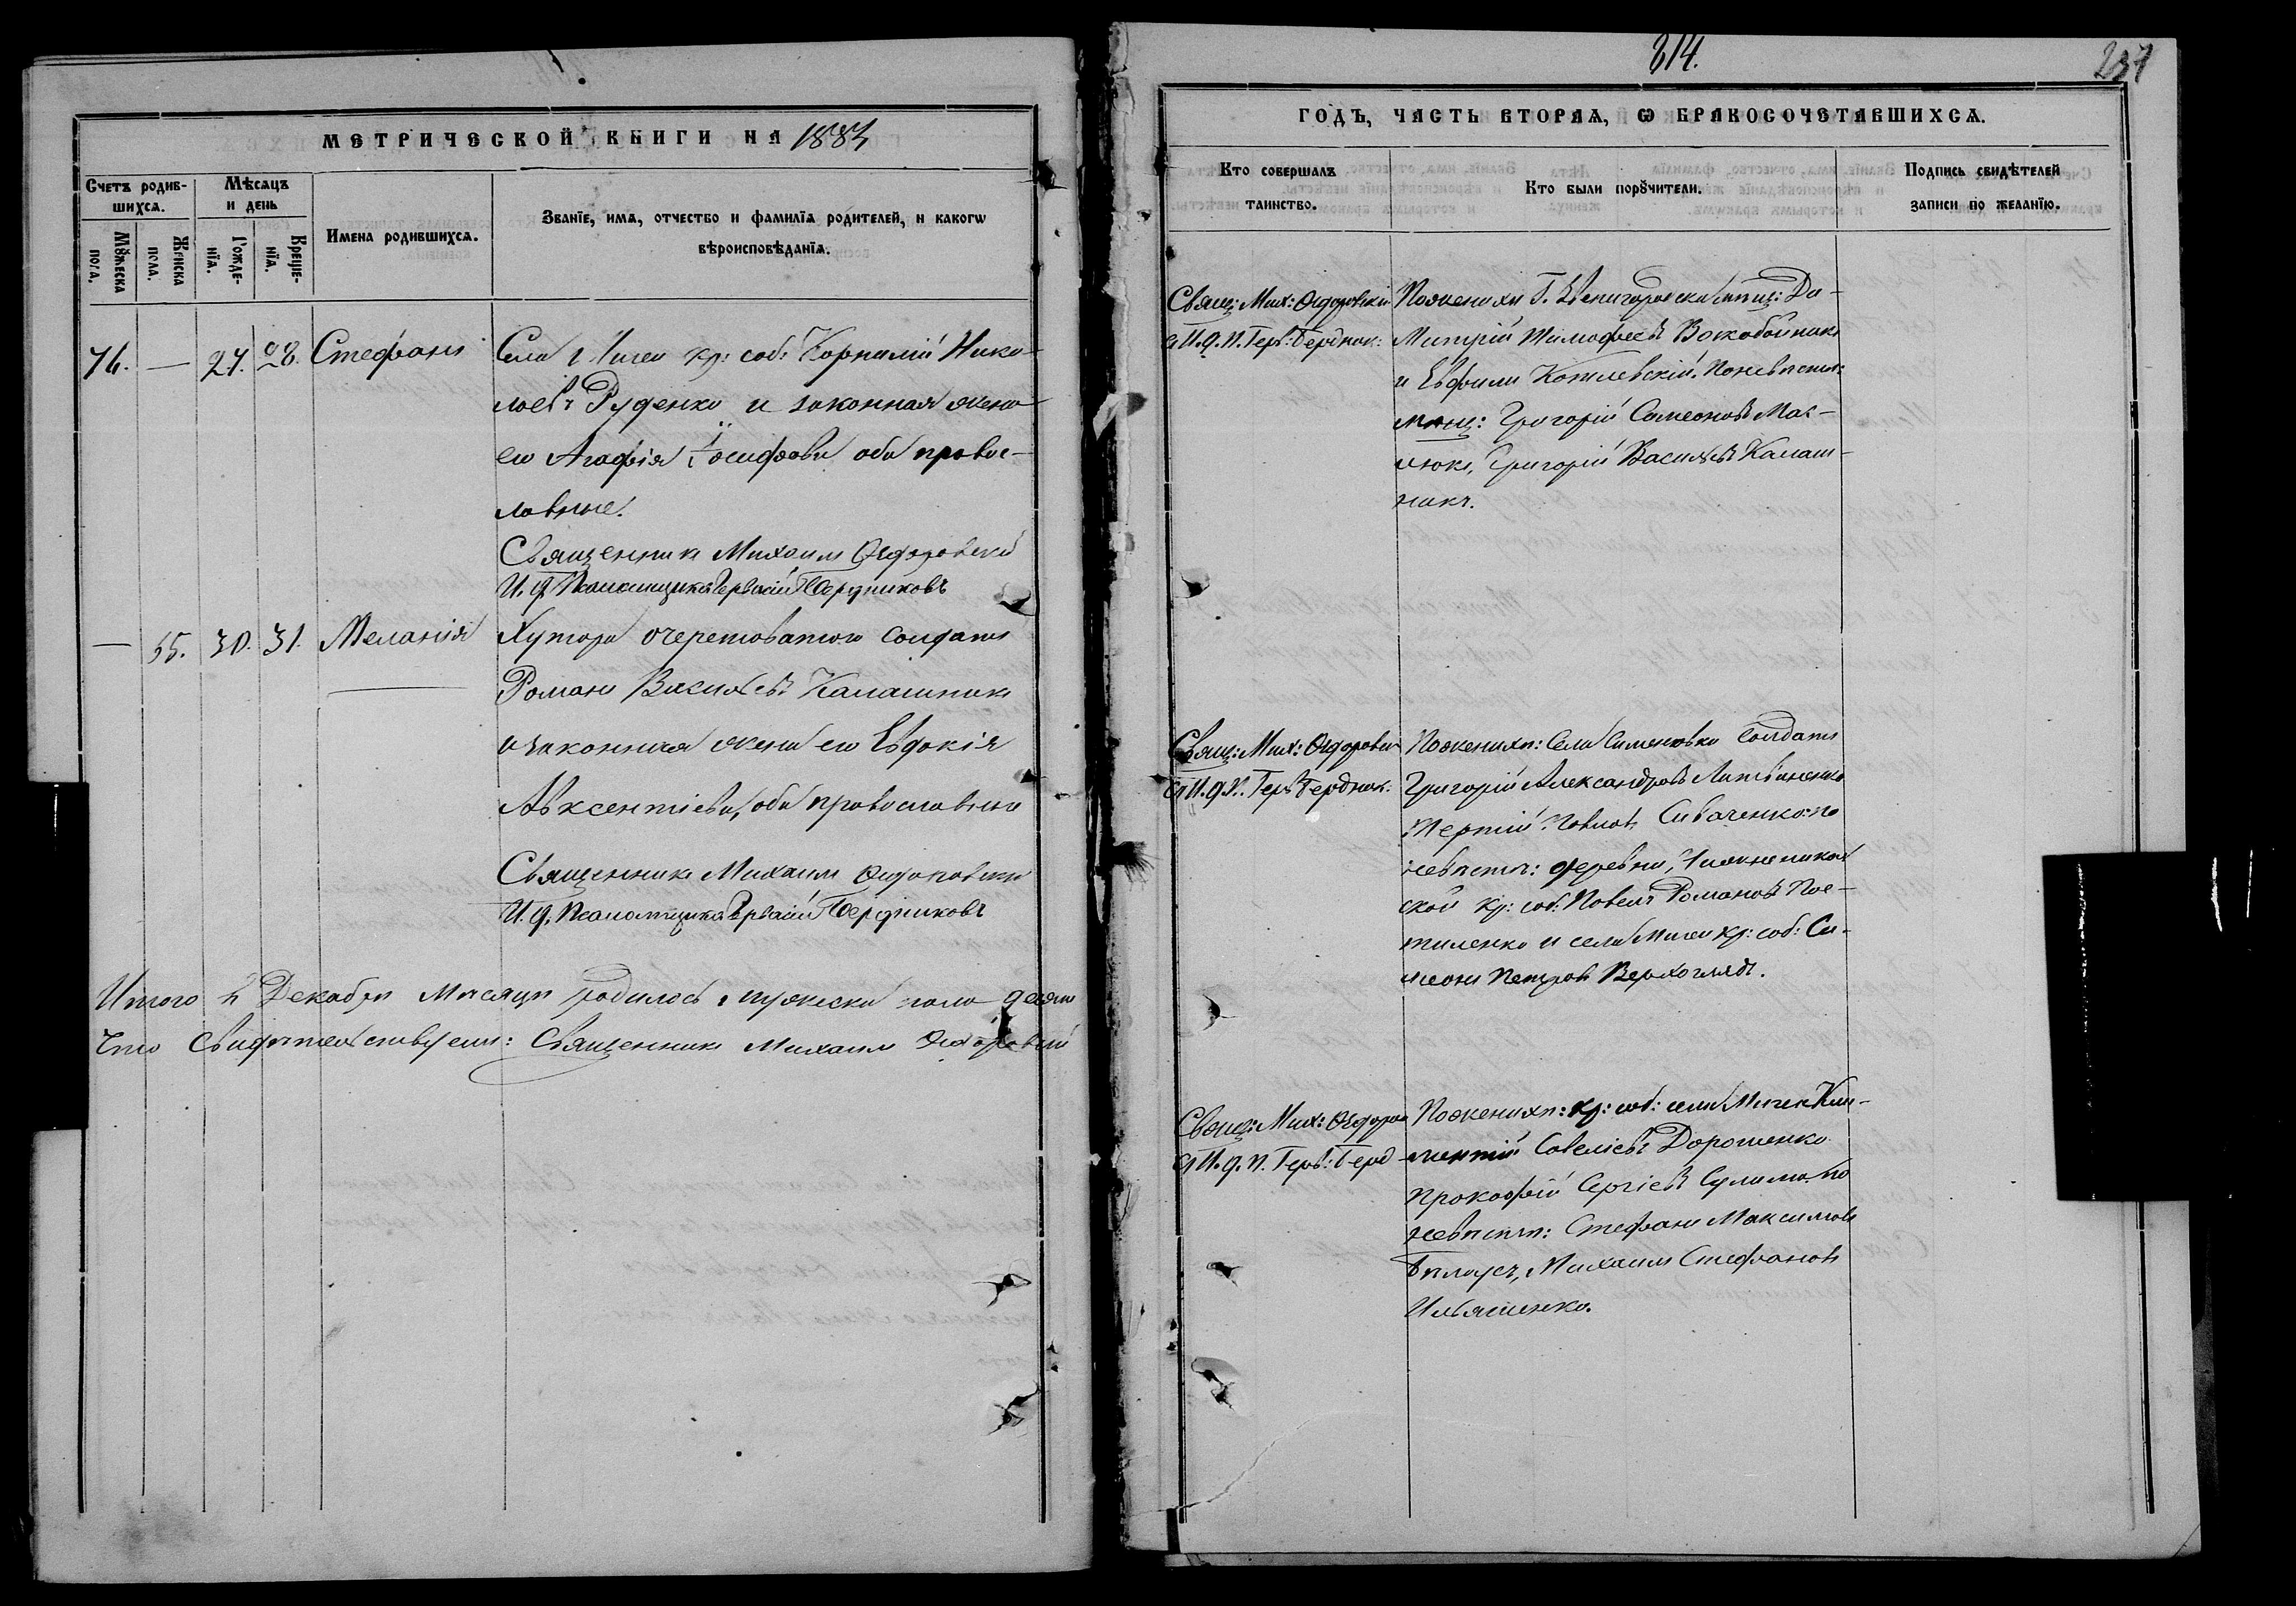 МЕТРИЧЕСКОЙ КНИГИ НА 1883
Счетъ родив-
шихсѧ.
Мѣсѧцъ
и день
Имена родившихсѧ.
Званїе, имѧ, отчество и фамилїѧ родителей, и какогѡ
вѣроисповѣданїѧ.
Мꙋжеска
пола.
Женска
пола.
Рожде-
нїѧ.
Креще-
нїѧ.
76. — 27. 28. Стефанъ
Села Мигеи кр: соб: Корнилій Нико-
лаевъ Руденко и законная жена
его Агафія Іосифова оба правос-
лавные.
Священникъ Михаилъ Ѳедоровскій
И. д. Псаломщика Гервасій Бердниковъ
— 55. 30. 31. Меланія
Хутора Очеретоватого Солдатъ
Романъ Васильевъ Калашникъ
и законная жена его Евдокія
Авксентіева, оба православные
Священникъ Михаилъ Ѳедоровскій
И. д. Псаломщика Гервасій Бердниковъ
Итого въ Декабрѣ Мѣсяцѣ родилось мужеска пола
Что свидѣтельствуемъ: Священникъ Михаилъ Ѳедоровскій
814.
237
ГОДЪ, ЧАСТЬ ВТОРАѦ, Ѡ БРАКОСОЧЕТАВШИХСѦ.
Кто совершалъ
таинство.
Кто были порꙋчители.
Подпись свидѣтелей
записи по желанїю.
Свящ: Мих: Ѳедоровскій
съ И. д. П. Герв: Бердник:
По женихѣ Г. Звенигородски мѣщ: Ди-
митрій Тимофеевъ Воскобойникъ
и Евфимъ Котлевскій. По невѣстѣ:
мѣщ: Григорій Симеоновъ Мас-
люкъ, Григорій Васильевъ Калаш-
никъ.
Свящ: Мих: Ѳедоровск
съ И. д. П. Герв: Бердник.
По женихѣ: Села Симоновки Солдатъ
Григорій Александровъ Литвиненко
Терентій Павловъ Сиваченко: по
невѣстѣ: деревни
ской кр: соб: Павелъ Романовъ Пос-
тиленко и села Мигеи кр: соб: Си-
меонъ Петровъ Верхоглядъ.
Свящ: Мих: Ѳедоров
съ И. д. П. Герв: Берд-
По женихѣ: кр: соб: села Мигеи Кли-
ментій Савеліевъ Дорошенко
Прокофій Сергіевъ Сулима по
невѣстѣ: Стефанъ Максимовъ
Бѣлоусъ, Михаилъ Стефановъ
Ильяшенко.